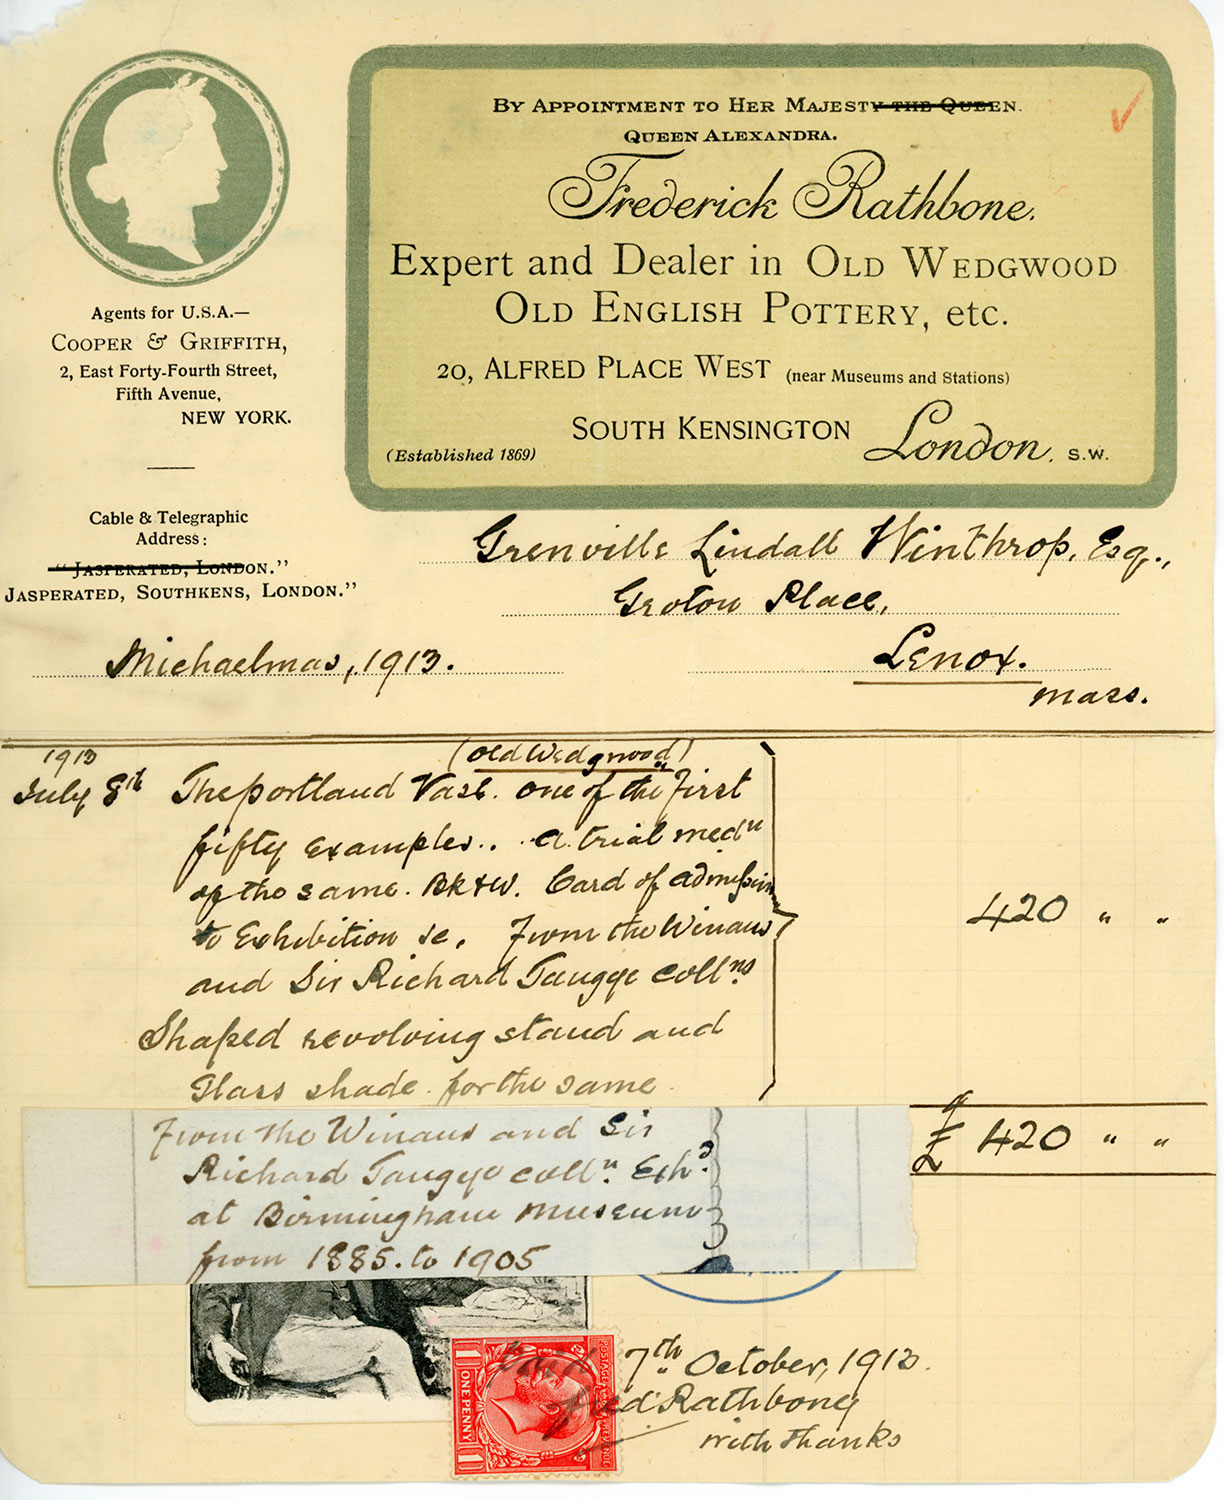 By Appointment to Her Majesty the Queen.
Queen Alexandra.
Frederick Rathbone.
Expert and Dealer in Old Wedgwood
Old English Pottery, etc.
20, Alfred Place West (near Museums and Stations)
South Kensington London. S.W.
(Established 1869)
Agents for U.S.A.—
Cooper & Griffith,
2, East Forty-Fourth Street,
Fifth Avenue,
NEW YORK.
Cable & Telegraphic
Address:
"Jasperated, London."
Jasperated, Southkens, London."
Grenville Lindall Winthrop, Esq.,
Groton Place,
Lenox.
Mass.
Michaelmas, 1913.
1913
(Old Wedgwood)
July 8th The portland Vase. one of the first
fifty examples.. a trial medn
of the same. Bk & W. Card of admission
to Exhibition &c. From the Winans
and Sir Richard Tangye Collns
420 " "
Shaped revolving stand and
Glass shade for the same.
£ 420 " "
From the Winans and Sir
Richard Tangye colln. Exhd.
at Birmingham Museum
from 1885. to 1905
7th October, 1913.
Fred Rathbone
with thanks
ONE PENNY
POSTAGE
REVENUE
1
1